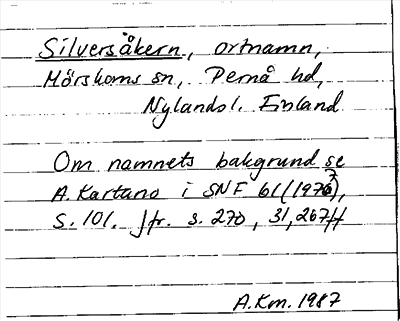 Silversåkern, ortnamn,
Mörskoms sn, Pernå hd,
Nylands l. Finland
Om namnets bakgrund se
A. Kartano i SNF 61 (1976),
s. 101. Jfr. s. 270, 31, 267 ff
A.Km. 1987